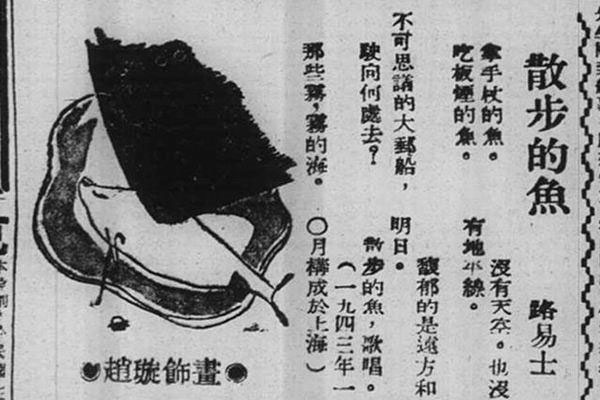 散步的魚
路易士
拿手杖的魚。
吃板煙的魚。
不可思議的大郵船，
駛向何處去？
那些霧，霧的海。
沒有天空。也沒
有地平線。
馥郁的是遠方和
明日。
散步的魚，歌唱。
（一九四三年一
〇月構成於上海）
●趙璇飾畫●